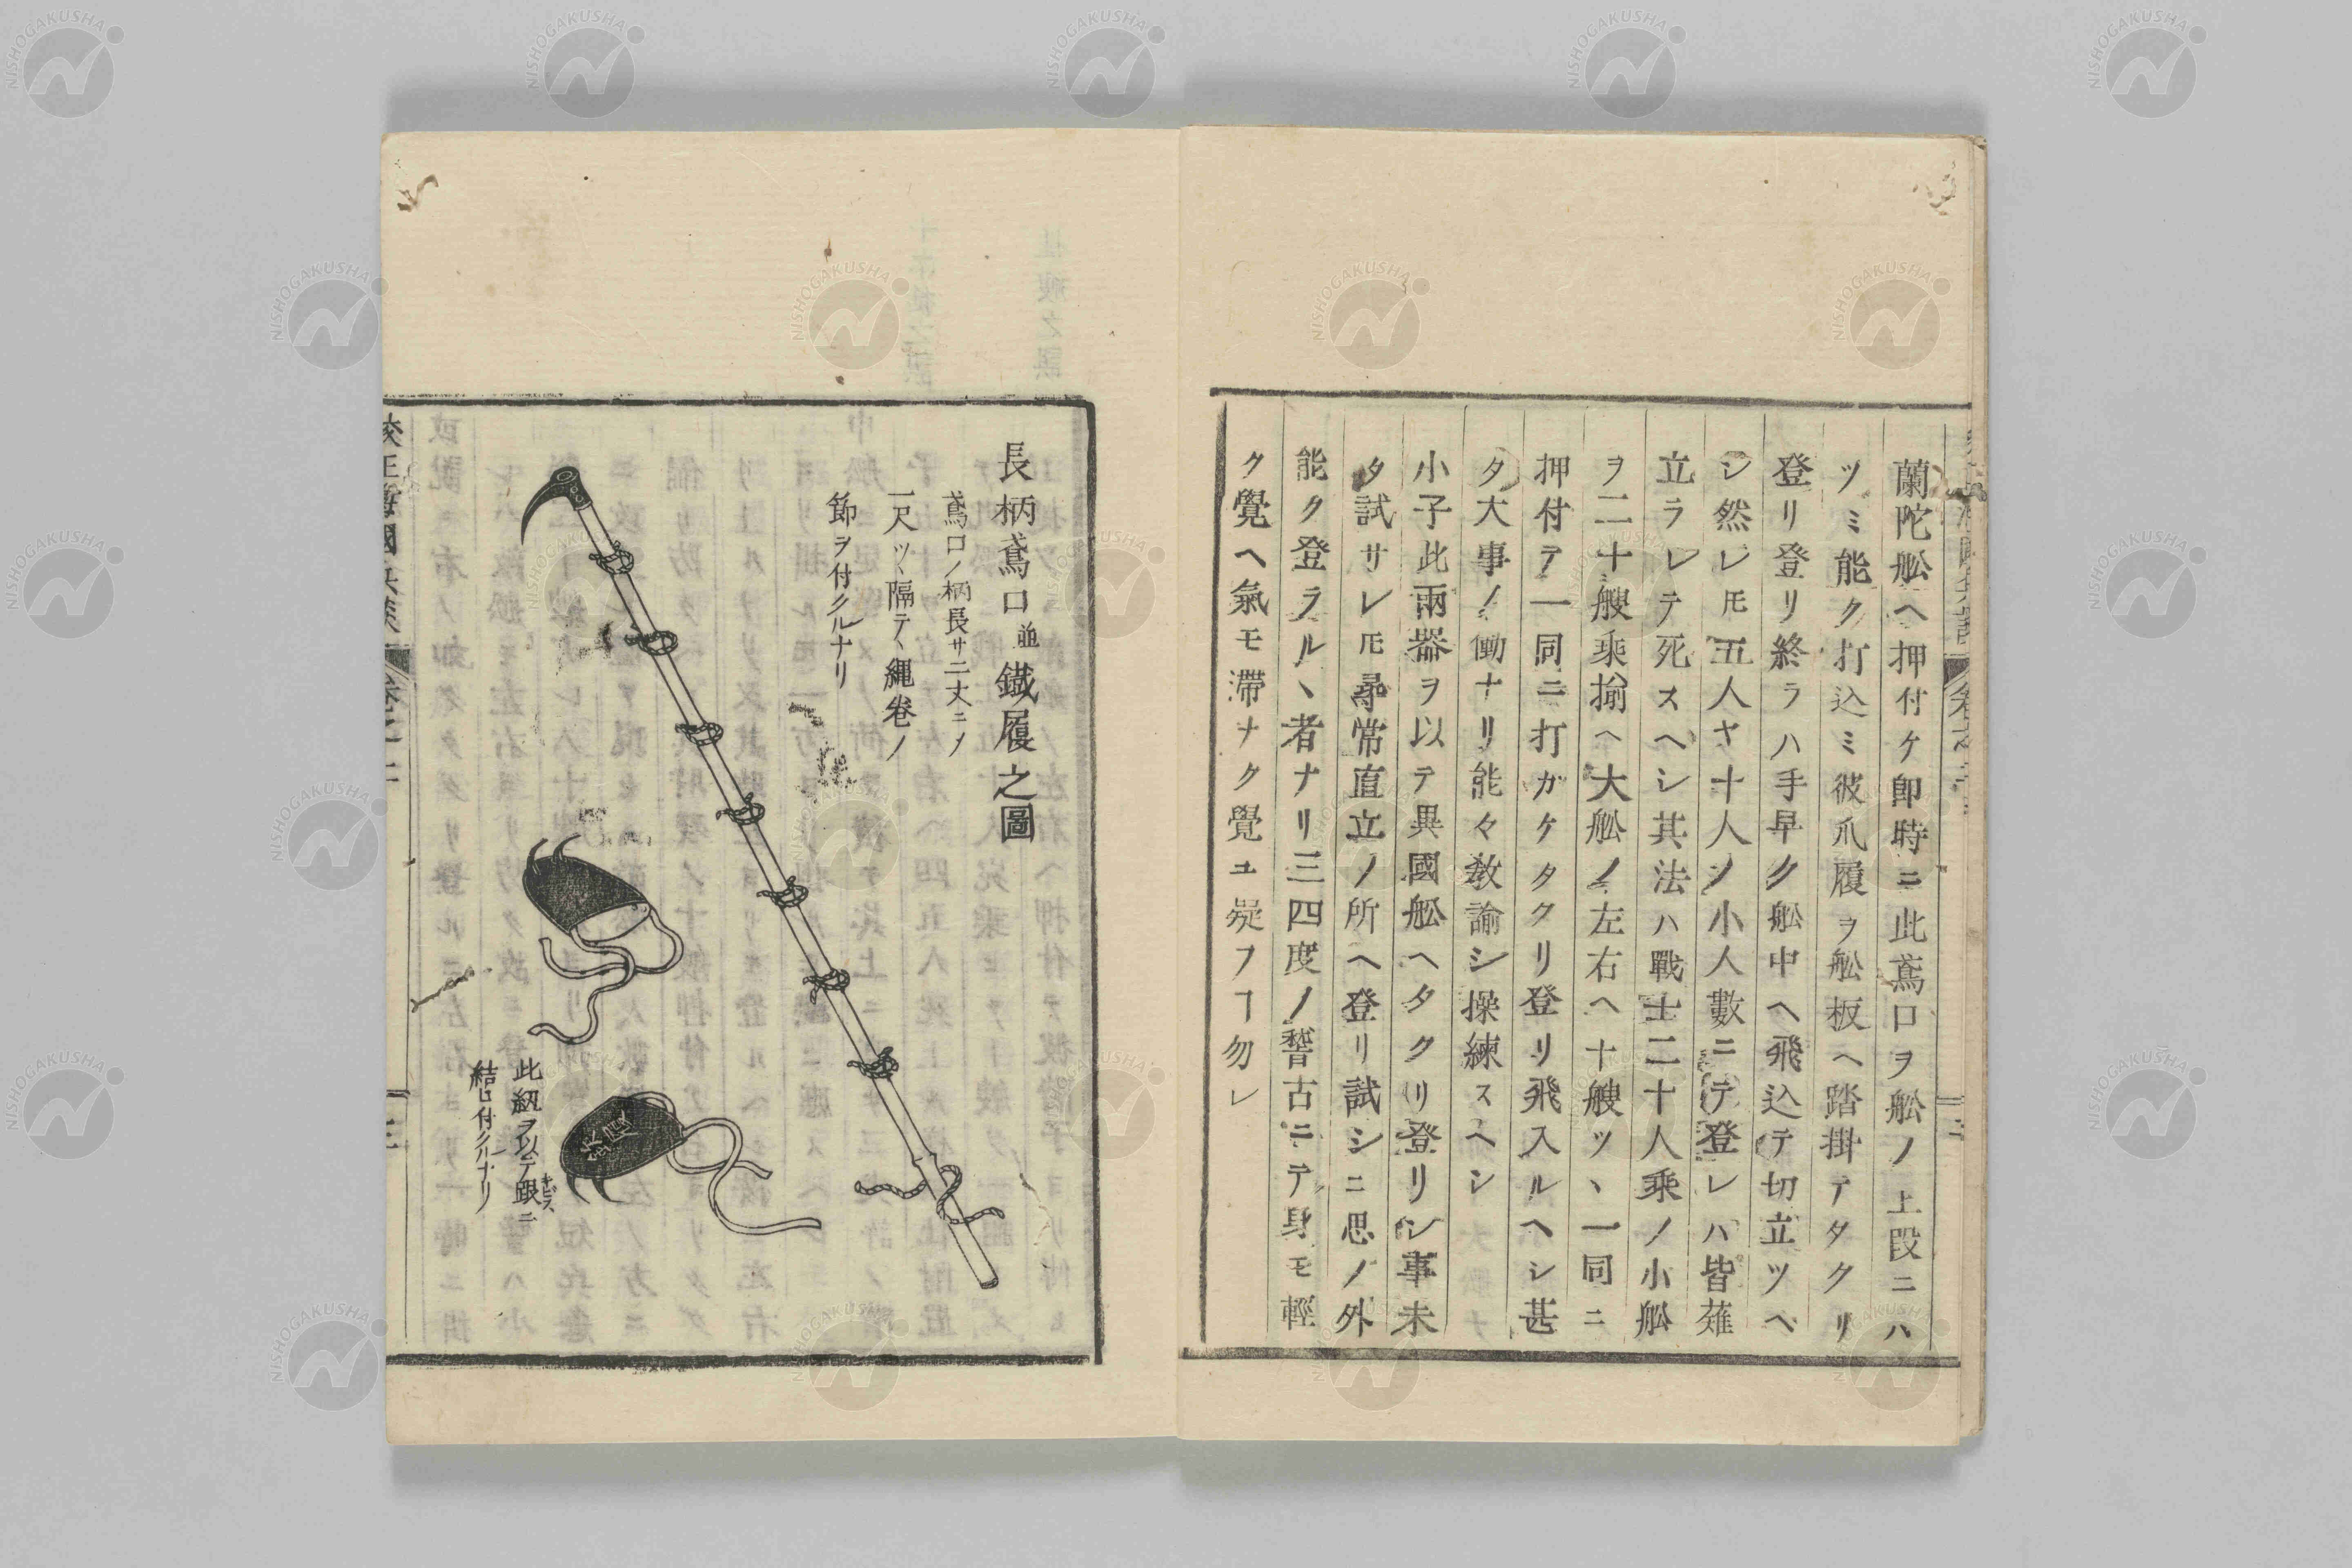 蘭陀舩ヘ押付ケ卽時ニ此鳶口ヲ舩ノ上段ニハ
ツミ能ク打込ミ彼爪履ヲ舩板ヘ踏掛テタクリ
登リ登リ終ラハ手早ク舩中ヘ飛込テ切立ツベ
シ然レ𪜈五人ヤ十人ノ小人數ニテ登レハ皆薙
立ラレテ死スヘシ其法ハ戰士二十人乘ノ小舩
ヲ二十艘乘揃ヘ大舩ノ左右ヘ十艘ツヽ一同ニ
押付テ一同ニ打ガケタクリ登リ飛入ルヘシ甚
タ大事ノ働ナリ能々敎諭シ操練スヘシ
小子此兩器ヲ以テ異國舩ヘタクリ登リシ事未
タ試サレ𪜈尋常直立ノ所ヘ登リ試シニ思ノ外
能ク登ラルヽ者ナリ三四度ノ誓古ニテ身モ輕
ク覺ヘ氣モ滯ナク覺ユ疑フヿ勿レ
長柄鳶口並鐵履之圖
鳶口ノ柄長サ二丈ニノ
一尺ツヽ隔テヽ繩卷ノ
節ヲ付クルナリ
鉄履
此紐ヲ以テ跟ニ
キビス
結ヒ付クルナリ
NISHOGAKUSHA